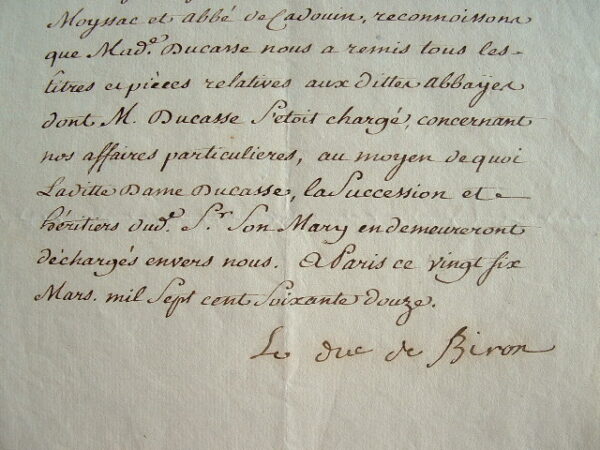 Moyssac et abbé de Cadouin, reconnoissons
que Mad.e Ducasse nous a remis tous les
titres et pièces relatives aux dittes abbayes
dont M. Ducasse s'etoit chargé, concernant
nos affaires particulieres, au moyen de quoi
Laditte Dame Ducasse, la Succession et
héritiers dud.t S.r Son Mary en demeureront
déchargés envers nous. A Paris ce vingt six
Mars. mil Sept cent Soixante douze.
Le duc de Biron